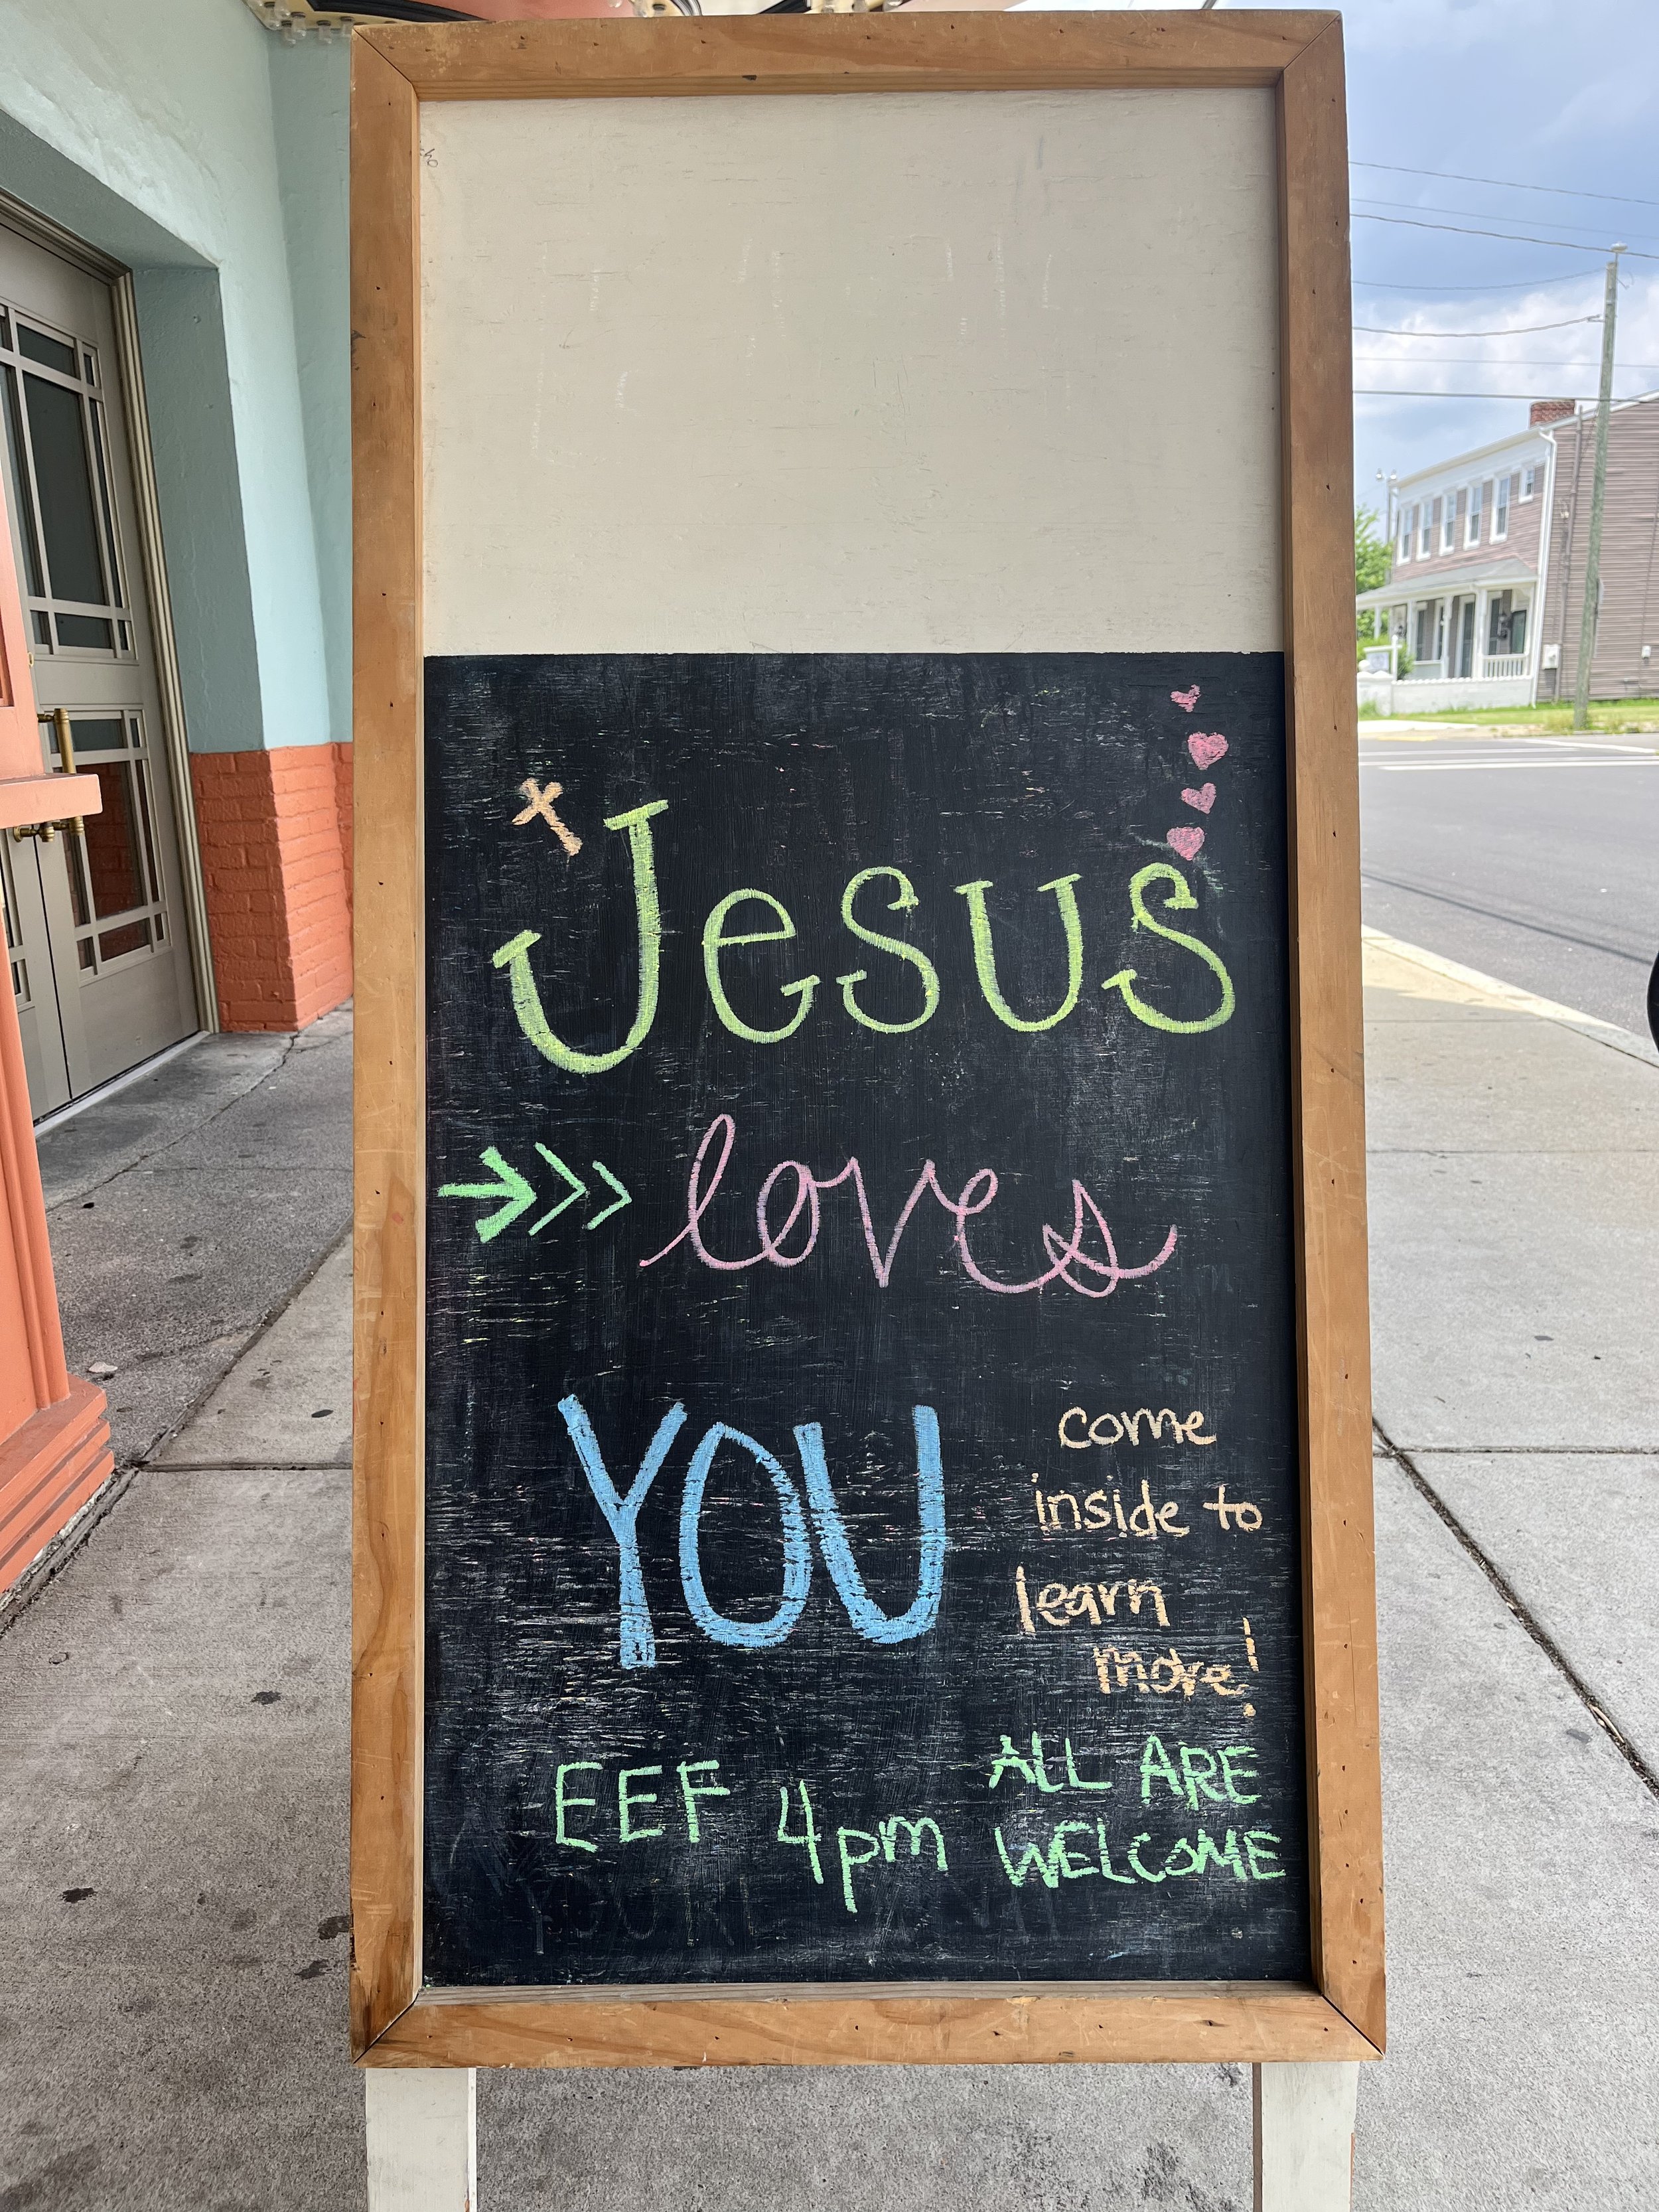 Jesus
loves
YOU
come
inside to
learn
more!
EEF 4pm
ALL ARE
WELCOME